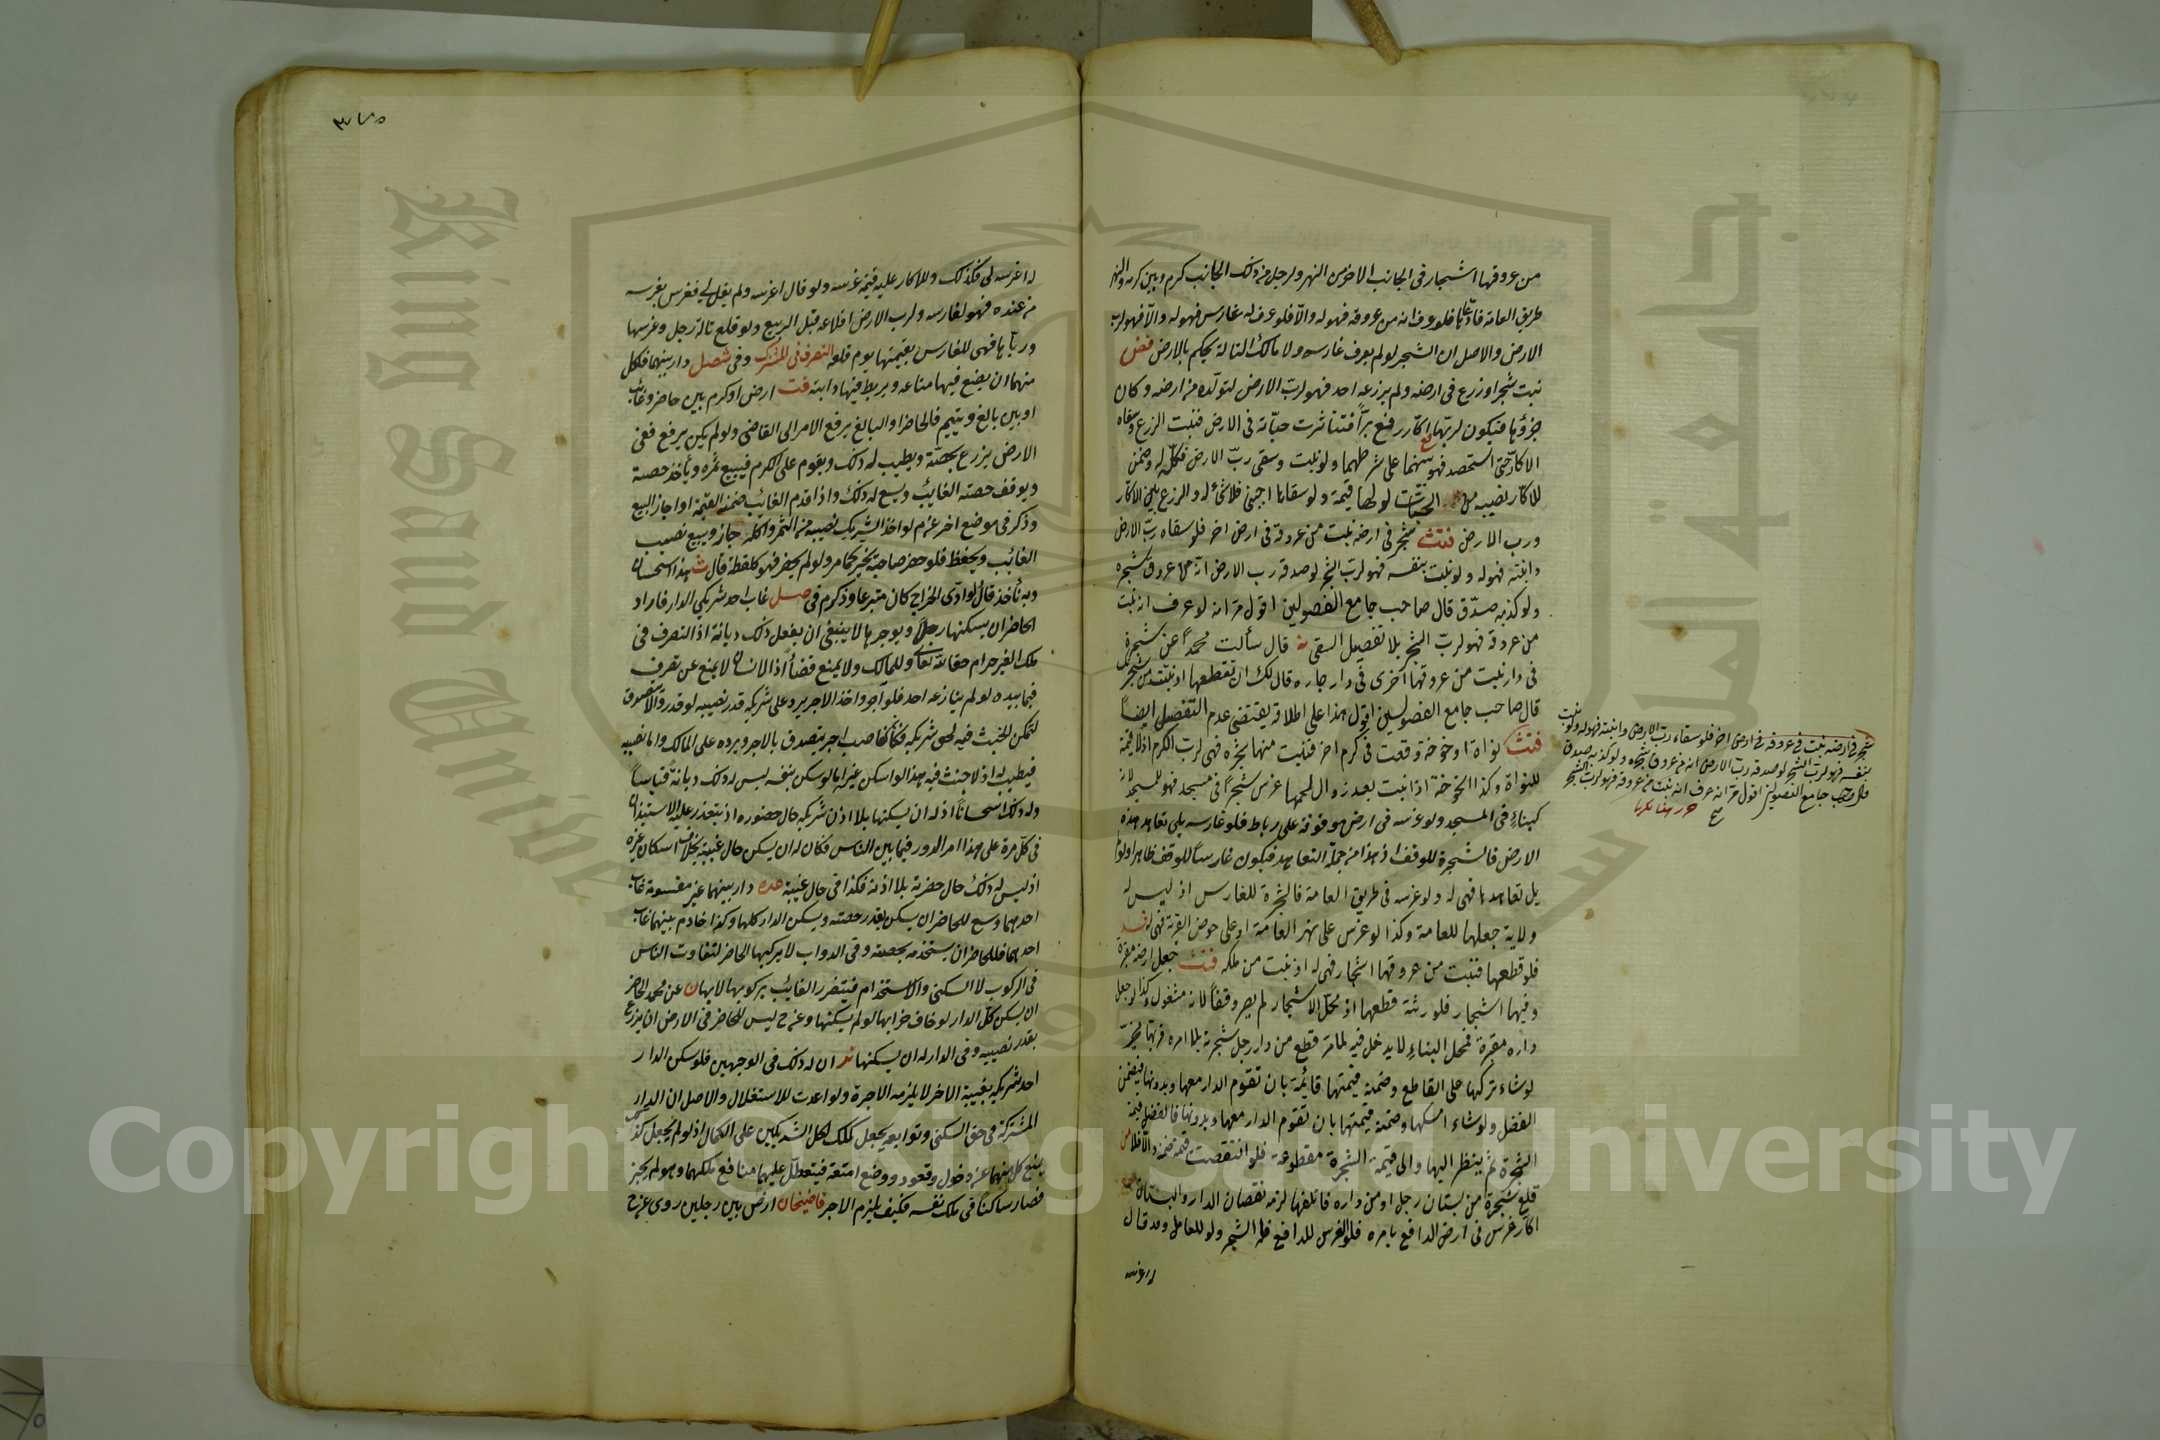 من عروقها اشجار في الجانب الاخر من النهر ولرجل في ذلك الجانب كرم وبين كرمه والنهر
طريق العامة فادعياها فلو عرف انه من عروقه فهو له والا فلو عرف له غارس فهو له والا فهو لرب
الارض والاصل ان الشجر لو لم يعرف غارسه ولا مالك التالة يحكم بالارض فض
نبت شجر او زرع في ارضه ولم يزرعه احد فهو لرب الارض لتولده من ارضه وكان
جزؤها فيكون لربها اكار رفع برا فتناثرت حباته في الارض فنبت الزرع وسقاه
الاكار حتى استحصد فهو بينهما على شرطهما ولو نبت وسقى رب الارض فكله له وضمن
للاكار نصيبه من الحبات لو لها قيمة ولو سقاها اجنبي فلا شئ له والزرع بين الاكار
ورب الارض فتث شجر في ارضه نبت من عروقه في ارض اخر فلو سقاه رب الارض
وانبته فهو له ولو نبت بنفسه فهو لرب الشجر لو صدقه رب الارض انه من عروق شجره
ولو كذبه صدق قال صاحب جامع الفصولين اقول مر انه لو عرف انه نبت
من عروقه فهو لرب الشجر بلا تفصيل السقي قال سألت محمدا عن شجرة
في دار نبت من عروقها اخرى في دار جاره قال لك ان تقطعها اذ نبتت من شجرتك
قال صاحب جامع الفصولين اقول هذا على اطلاقه يقتضي عدم التفصيل ايضا
فتث نواة او خوخة وقعت في كرم اخر فنبت منها شجرة فهي لرب الكرم اذ لا قيمة
للنواة وكذا الخوخة اذا نبت بعد زوال لحمها غرس شجرا في مسجد فهو للمسجد لانه
كبناء في المسجد ولو غرسه في ارض موقوفة على رباط فلو غارسه يلي تعاهد هذه
الارض فالشجرة للوقف اذ هذا من جملة التعاهد فيكون غارسا للوقف ظاهرا ولو لم
يل تعاهدها فهي له ولو غرسه في طريق العامة فالشجرة للغارس اذ ليس له
ولاية جعلها للعامة وكذا لو غرس على نهر العامة او على حوض القرية فهي له
فلو قطعها فنبت من عروقها اشجار فهي له اذ نبت من ملكه فتث جعل ارضه مقبرة
وفيها اشجار فلورثته قطعها اذ محل الاشجار لم يصر وقفا لانه مشغول وكذا لو جعل
داره مقبرة فمحل البناء لا يدخل فيه لما مر قطع من دار رجل شجرته بلا امره فربها مخير
لو شاء تركها على القاطع وضمنه قيمتها قائمة بان تقوم الدار معها وبدونها فيضمن
الفضل ولو شاء امسكها وضمنه قيمتها بان تقوم الدار معها وبدونها فالفضل قيمة
الشجرة ثم ينظر اليها والى قيمة الشجرة مقطوعة فلو انتقصت قيمته ضمنه والا فلا
قلع شجرة من بستان رجل او من داره فاتلفها لزمه نقصان الدار والبستان
اكار غرس في ارض الدافع بامره فلو الغرس للدافع فله الشجر ولو للعامل وقد قال
له اغرسه
شجر في ارضه نبت في عروقه في ارض اخر فلو سقاه رب الارض وانبته فهو له ولو نبت
بنفسه فهو لرب الشجر لو صدقه رب الارض انه من عروق شجره ولو كذبه صدق
قال صاحب جامع الفصولين اقول مر انه عرف انه نبت من عروقه فهو لرب الشجر
٣٧٥
له اغرسه لي فكذلك وللاكار عليه قيمة غرسه ولو قال اغرسه ولم يقل لي فغرس بغرسه
من عنده فهو لغارسه ولرب الارض اقلاعه قبل الربيع ولو قلع تالة رجل وغرسها
ورباها فهي للغارس بقيمتها يوم قلعه التصرف في المشترك وفي فصل دار بينهما فلكل
منهما ان يضع فيها متاعه ويربط فيها دابته فت ارض او كرم بين حاضر وغائب
او بين بالغ ويتيم فالحاضر او البالغ يرفع الامر الى القاضي ولو لم يكن يرفع ففي
الارض يزرع بحصته ويطيب له ذلك ويقوم على الكرم فيبيع ثمره ويأخذ حصته
ويوقف حصة الغائب ويسع له ذلك واذا قدم الغائب ضمنه القيمة او اجاز البيع
وذكر في موضع اخر عن م لو اخذ الشريك نصيبه من الثمر واكله جاز ويبيع نصيب
الغائب ويحفظ فلو حضر صاحبه يخير كما مر ولو لم يحضر فهو كلقطة قال ث هذا استحسان
وبه نأخذ قال لو ادى الخراج كان متبرعا وذكر م في صل غاب احد شريكي الدار فاراد
الحاضر ان يسكنها رجلا ويوجرها لا ينبغي ان يفعل ذلك ديانة اذ التصرف في
ملك الغير حرام حقا لله تعالى وللمالك ولا يمنع قضاء اذ الانسان لا يمنع عن تصرف
فيما بيده لو لم ينازعه احد فلو آجر واخذ الاجر يرد على شريكه قدر نصيبه لو قدر والا تصدق
لتمكن الخبث فيه لحق شريكه فكان كغاصب اجر يتصدق بالاجر ويرده على المالك واما نصيبه
فيطيب له اذ لا خبث فيه هذا لو اسكن غيره اما لو سكن بنفسه ليس له ذلك ديانة قياسا
وله ذلك استحسانا اذ له ان يسكنها بلا اذن شريكه حال حضوره اذ يتعذر عليه الاستيذان
في كل مرة على هذا امر الدور فيما بين الناس فكان له ان يسكن حال غيبته بخلاف اسكان غيره
اذ ليس له ذلك حال حضرته بلا اذنه فكذا في حال غيبته عده دار بينهما غير مقسومة غاب
احدهما وسع للحاضر ان يسكن بقدر حصته ويسكن الدار كلها وكذا خادم بينهما غاب
احدهما فللحاضر ان يستخدمه بحصته وفي الدواب لا يركبها الحاضر لتفاوت الناس
في الركوب لا السكنى والاستخدام فيتضرر الغائب بركوبها لا بهان عن محمد للحاضر
ان يسكن كل الدار لو خاف خرابها لو لم يسكنها وعن ح ليس للحاضر في الارض ان يزرع
بقدر نصيبه وفي الدار له ان يسكنها نمر ان له ذلك في الوجهين فلو سكن الدار
احد شريكيه بغيبة الاخر لا يلزمه الاجرة ولو اعدت للاستغلال والاصل ان الدار
المشتركة في حق السكنى وتوابعه يجعل كملك لكل الشريكين على الكمال اذ لو لم يجعل كذلك
يمنع كل منهما عن دخول وقعود ووضع امتعة فيتعطل عليهما منافع ملكهما وهو لم يجز
فصار ساكنا في ملك نفسه فكيف يلزم الاجر قاضيخان ارض بين رجلين روى عن ح
Copyright © King Saud University
King Saud University
جامعة الملك سعود